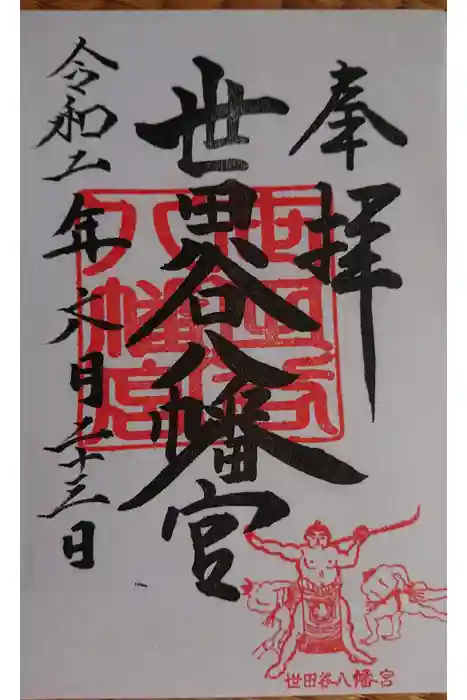 奉拝
世田谷八幡宮
令和二年六月二十三日
世田谷
八幡宮
世田谷八幡宮